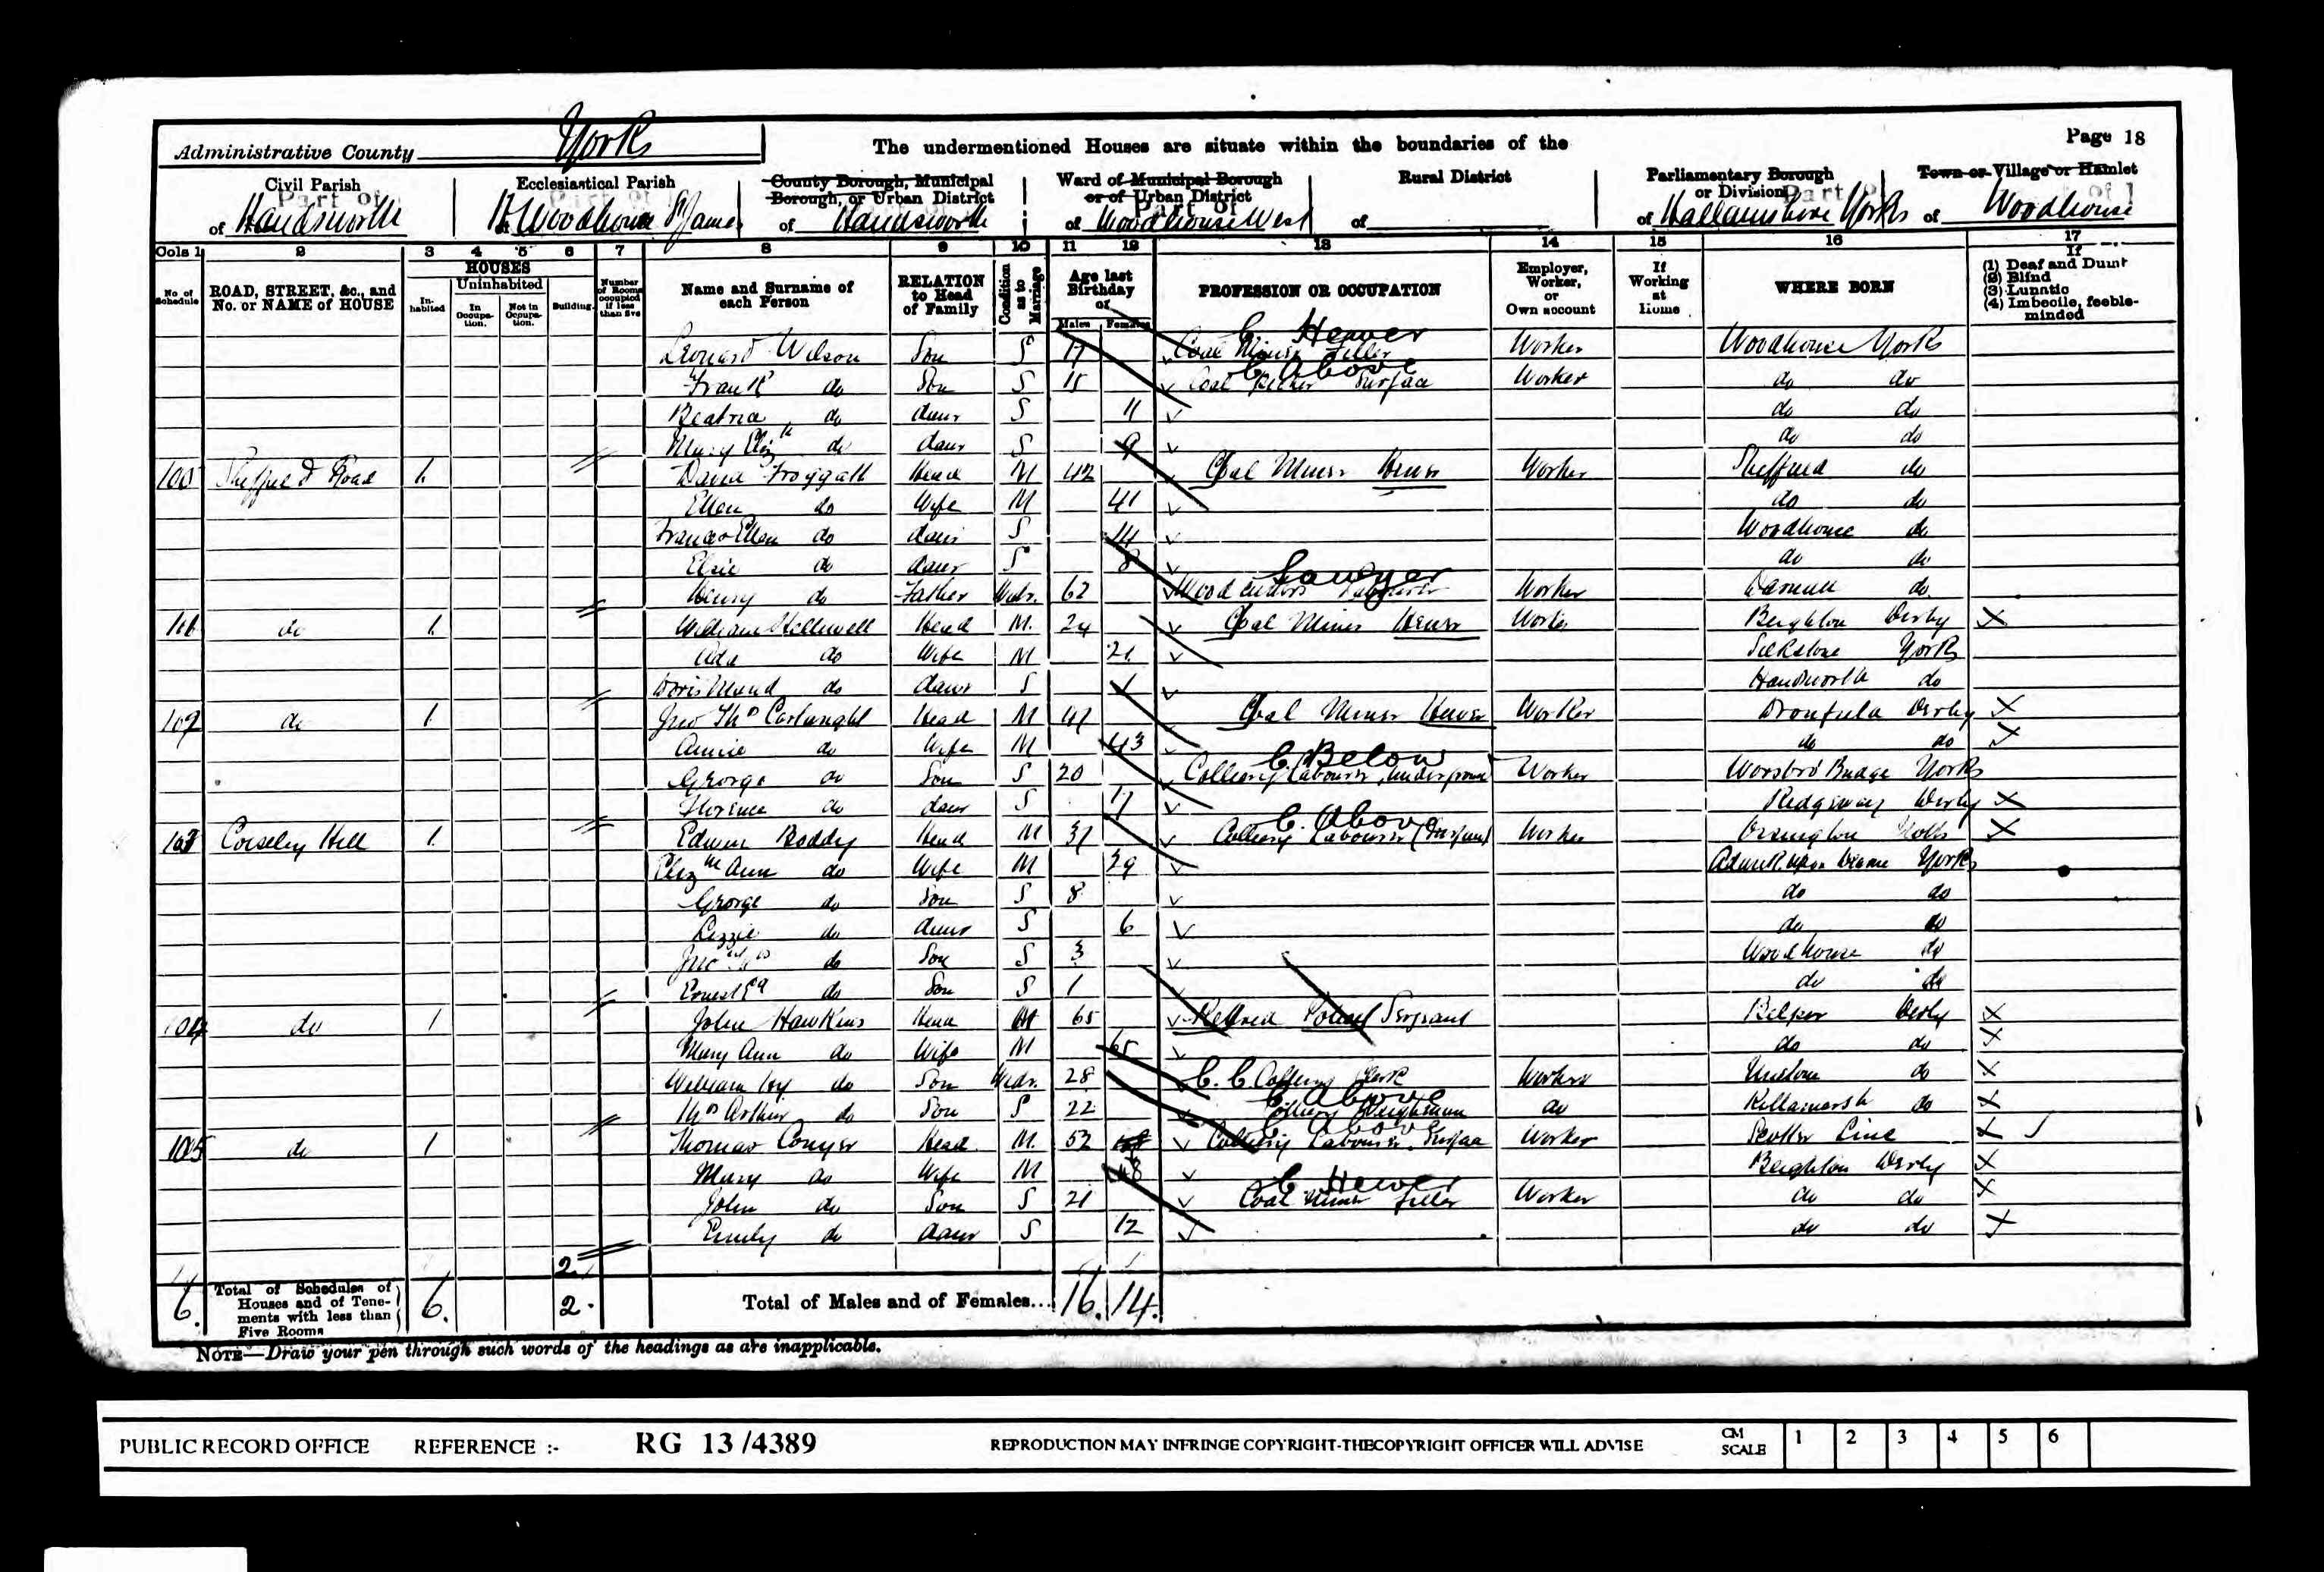 Page 18
Administrative County York The undermentioned Houses are situate within the boundaries of the
Civil Parish Ecclesiastical Parish County Borough, Municipal Borough, or Urban District Ward of Municipal Borough or of Urban District Rural District Parliamentary Borough or Division Town or Village or Hamlet
Part of Part of Part of Part of
of Handsworth Woodhouse St James of Handsworth of Woodhouse West of of Hallamshire Yorks of Woodhouse
Cols 1 2 3 4 5 6 7 8 9 10 11 12 13 14 15 16 17
No of Schedule ROAD, STREET, &c., and No. or NAME of HOUSE HOUSES In-habited Uninhabited In Occupa-tion. Not in Occupa-tion. Building. Number of Rooms occupied if less than five Name and Surname of each Person RELATION to Head of Family Condition as to Marriage Age last Birthday of Males Females PROFESSION OR OCCUPATION Employer, Worker, or Own account If Working at Home WHERE BORN If (1) Deaf and Dumb (2) Blind (3) Lunatic (4) Imbecile, feeble-minded
C Hewer
Leonard Wilson Son S 17 Coal Miner Filler Worker Woodhouse York
C Above
Frank do Son S 15 Coal Picker Surface Worker do do
Beatrice do daur S 11 do do
Mary Elizth do daur S 9 do do
100 Sheffield Road 1 David Froggatt Head M 42 Coal Miner Hewer Worker Sheffield do
Ellen do Wife M 41 do do
Frances Ellen do daur S 14 Woodhouse do
Elsie do daur S 8 do do
Sawyer
Henry do Father Widr. 62 Wood Labourer Worker Darnall do
101 do 1 William Stillwell Head M. 24 Coal Miner Hewer Worker Beighton Derby X
Ada do Wife M 21 Silkstone York
Doris Maud do daur S 1 Handsworth do
102 do 1 Jno Thos Cartwright Head M 47 Coal Miner Hewer Worker Dronfield Derby X
Annie do Wife M 43 do do X
C. Below
George do Son S 20 Colliery Labourer, Underground Worker Worsbro Bridge Yorks
Florence do daur S 17 Ridgeway Derby X
C. Above
103 Corseley Hill 1 Edwin Boddy Head M 37 Colliery Labourer (Surface) Worker Ossington Notts X
Elizth Ann do Wife M 29 Adwick upon Dearne Yorks
George do Son S 8 do do
Lizzie do daur S 6 do do
Jno Thos do Son S 3 Woodhouse do
Ernest Ed do Son S 1 do do
104 do 1 John Hawkins Head M 65 Retired Police Sergeant Belper Derby X
Mary Ann do Wife M 65 do do X
William Hy do Son Widr. 28 C. C. Colliery Clerk Worker Unstone do X
C Above
Thos Arthur do Son S 22 Colliery Weighman do Killamarsh do X
C Above
105 do 1 Thomas Conyer Head M. 52 Colliery Labourer, Surface Worker Scotter Linc X
Mary do Wife M 48 Beighton Derby X
C Hewer
John do Son S 21 Coal Miner Filler Worker do do X
Emily do daur S 12 do do X
2
6. Total of Schedules of Houses and of Tene-ments with less than Five Rooms 6. 2. Total of Males and of Females... 16. 14.
NOTE—Draw your pen through such words of the headings as are inapplicable.
PUBLIC RECORD OFFICE REFERENCE :- RG 13/4389 REPRODUCTION MAY INFRINGE COPYRIGHT-THECOPYRIGHT OFFICER WILL ADVISE CM SCALE 1 2 3 4 5 6